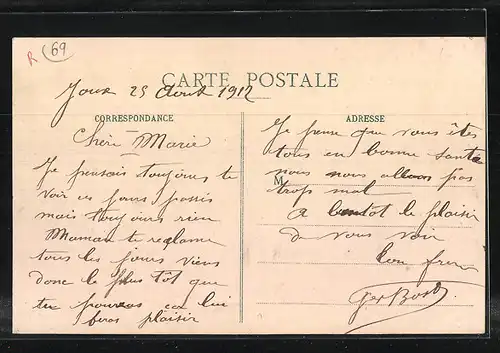 R 69
CARTE POSTALE
Joux 25 Aout 1912
CORRESPONDANCE
Chère Marie
Je pensais toujours te
voir ces jours passés
mais toujours rien
Maman te reclame
tous les jours viens
donc le plus tôt que
tu pourras ca lui
feras plaisir
ADRESSE
Je pense que vous êtes
tous en bonne santé
nous nous allons pas
M
trop mal
A bientot le plaisir
de vous voir
ton frere